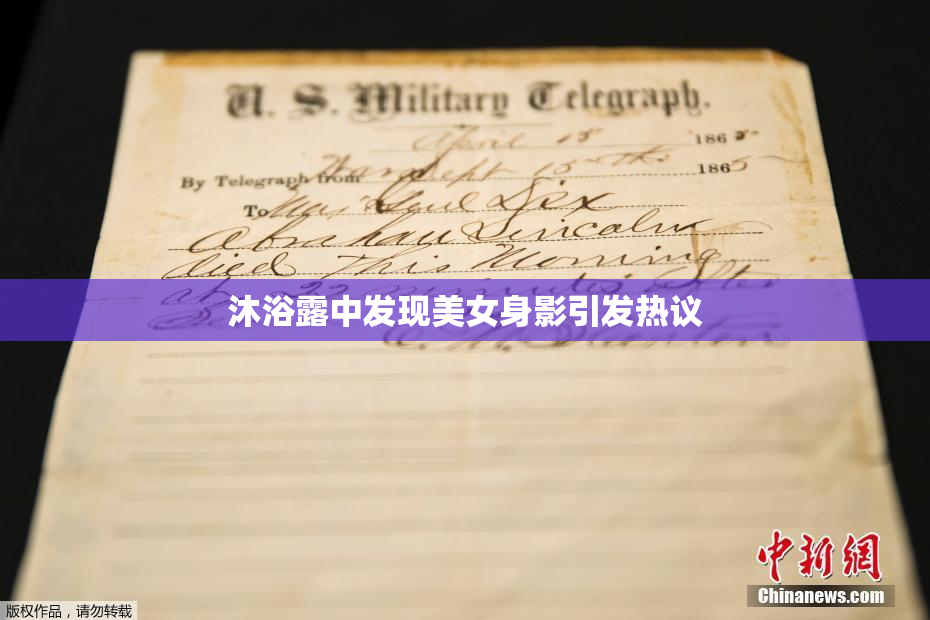 U. S. Military Telegraph.
April 15 1865
By Telegraph from War Dept 15th 1865
To Maj Genl Dix
Abraham Lincoln
died This Morning
at 22 minutes after
沐浴露中发现美女身影引发热议
Stanton
中新网
Chinanews.com
版权作品，请勿转载